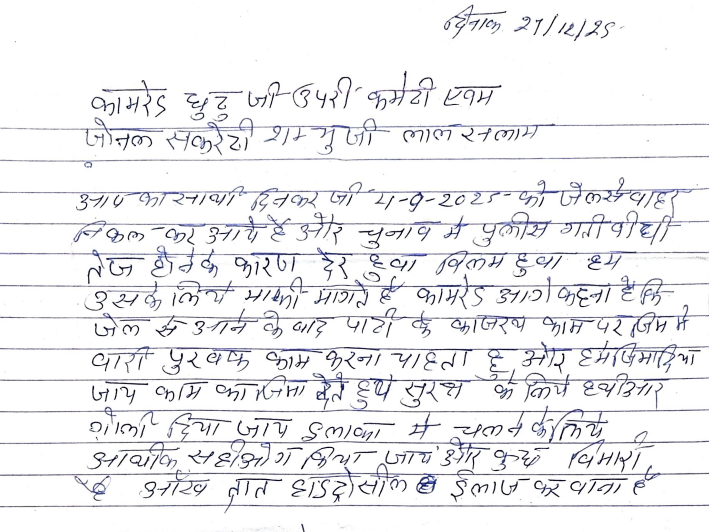 दिनांक 27/12/25
कामरेड घुटु जी उपरी कमेटी एवम
जोनल सकरेटी शम्भु जी लाल सलाम
आप का साथी दिनकर जी 4-9-2025 को जेल से बाहर
निकल कर आये हैं और चुनाव में पुलीस गती वीधी
तेज होने के कारण देर हुवा विलम हुवा हम
उसके लिये माफी मांगते हैं कामरेड आगे कहना है कि
जेल से आने के वाद पार्टी के काजरव काम पर जिम्मे
वारी पुरवक काम करना चाहता हु और हमे जिमा दिया
जाय काम का जिमा देते हुये सुरक्ष के लिये हथीआर
गोली दिया जाय इलाका में चलने के लिये
आर्थीक सहीओग किया जाय और कुछ विमारी
है आँख दात हाइड्रोसील ईलाज करवाना है